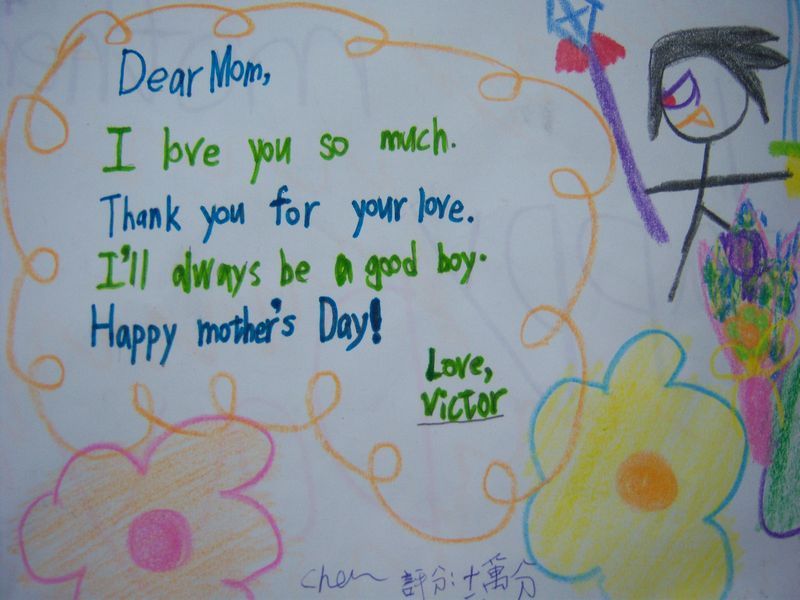 Dear Mom,
I love you so much.
Thank you for your love.
I'll always be a good boy.
Happy mother's Day!
Love,
Victor
Chen 評分:十萬分